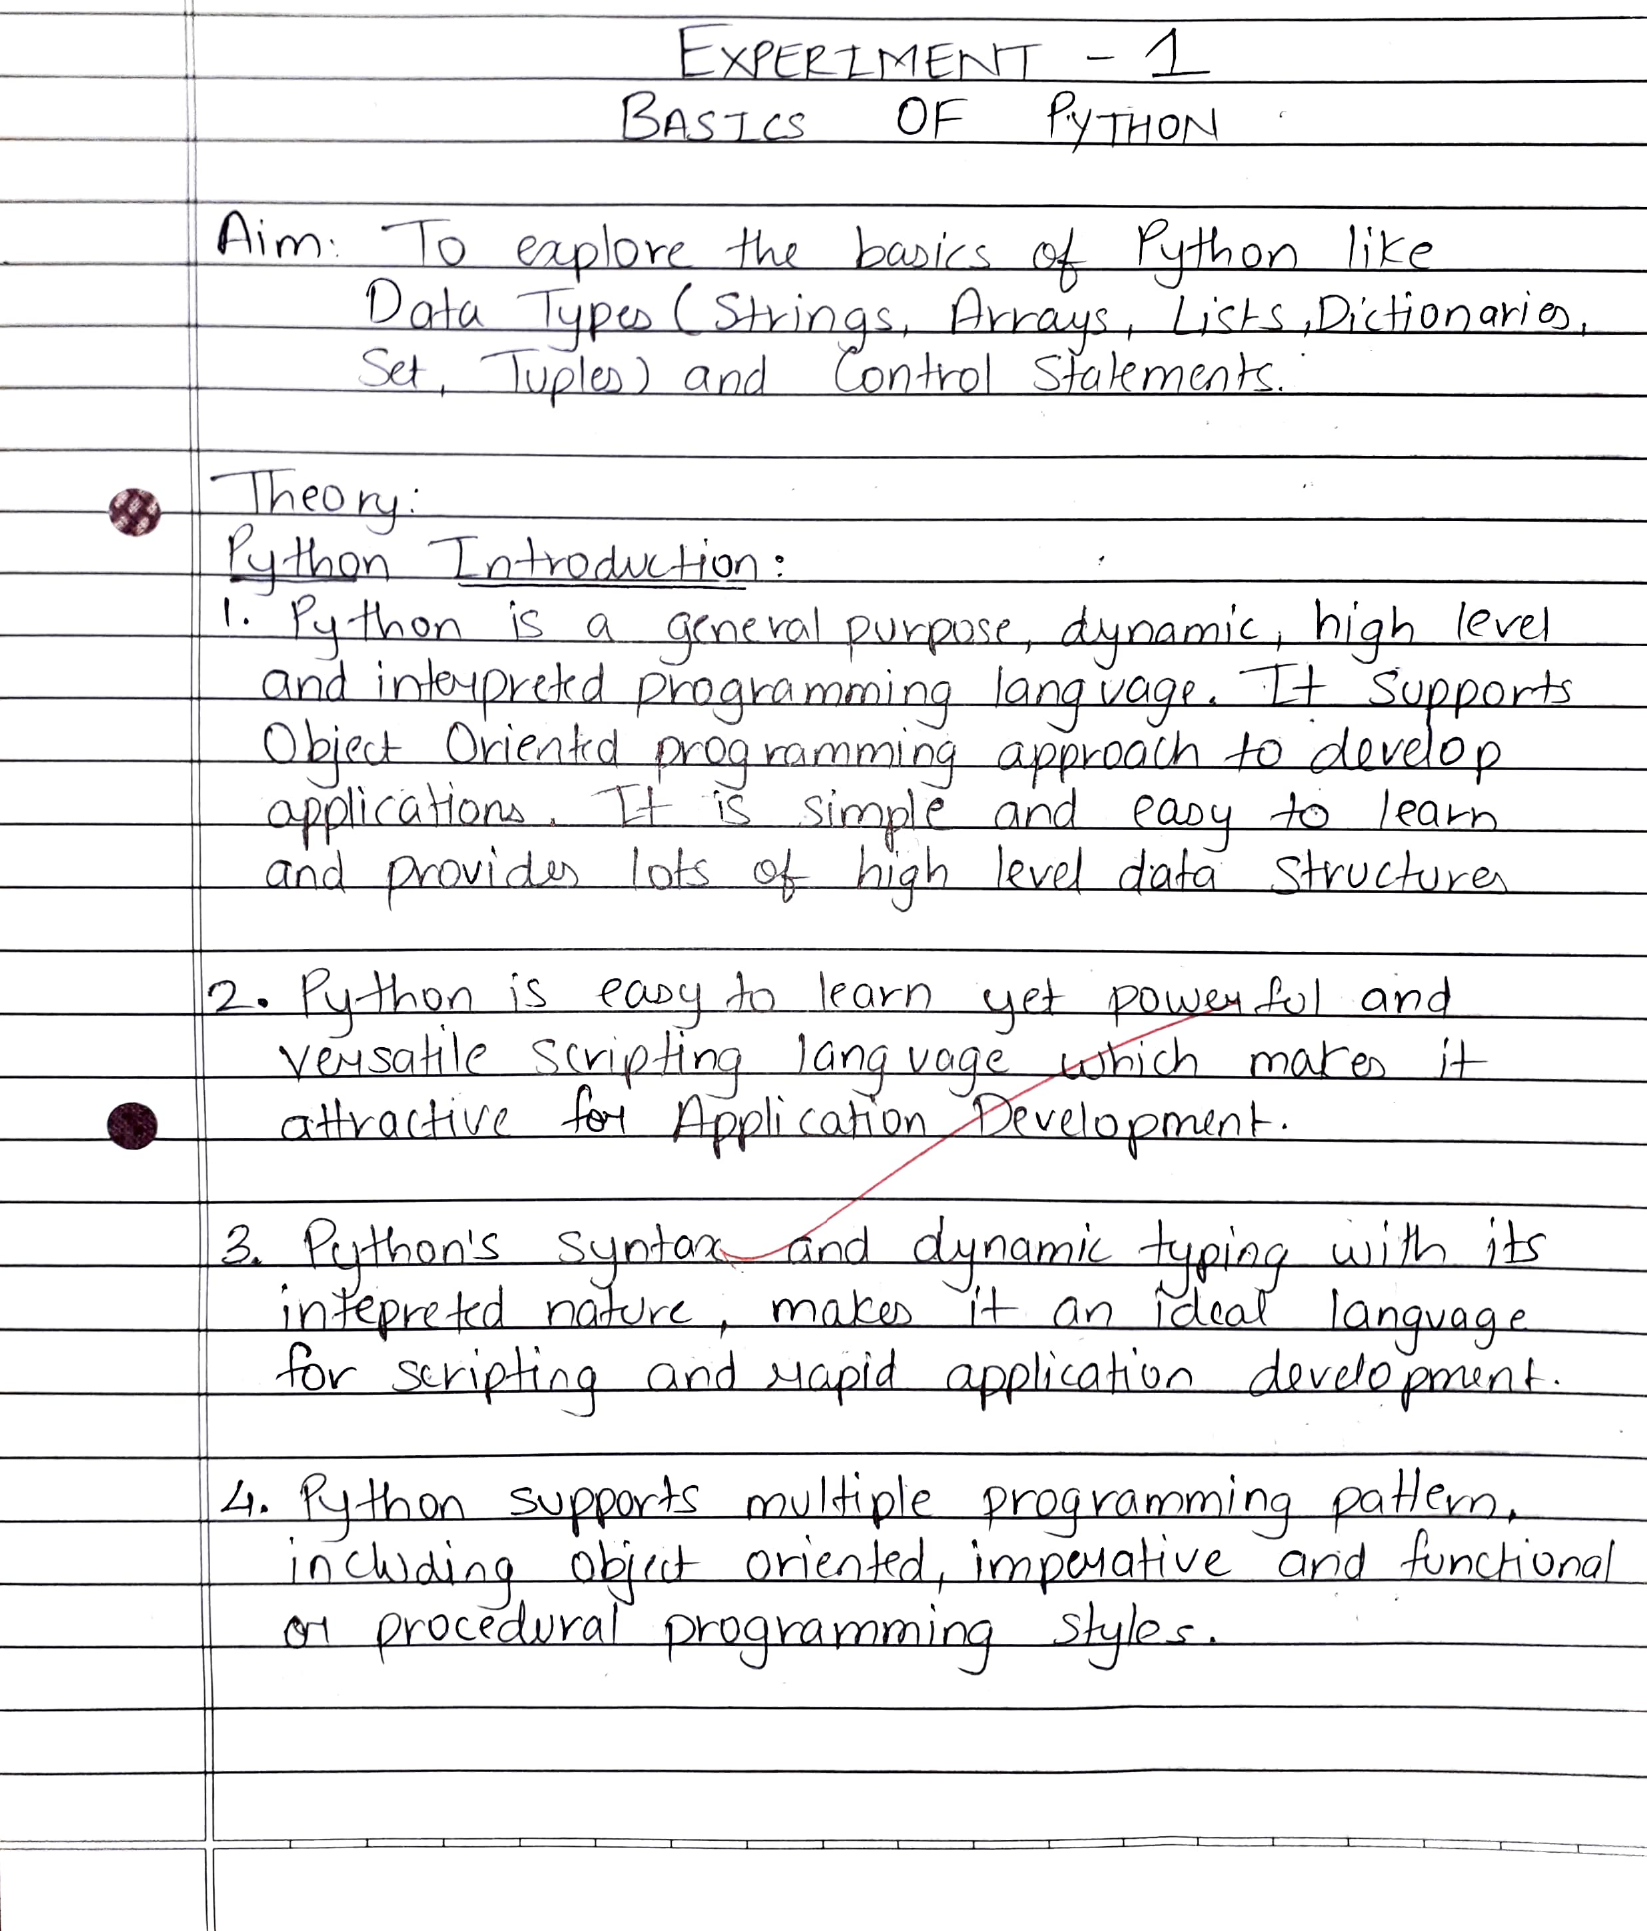 EXPERIMENT - 1
BASICS OF PYTHON
Aim: To explore the basics of Python like
Data Types (Strings, Arrays, Lists, Dictionaries,
Set, Tuples) and Control Statements.
Theory:
Python Introduction:
1. Python is a general purpose, dynamic, high level
and interpreted programming language. It supports
Object Oriented programming approach to develop
applications. It is simple and easy to learn
and provides lots of high level data structures
2. Python is easy to learn yet powerful and
versatile scripting language which makes it
attractive for Application Development.
3. Python's syntax and dynamic typing with its
intepreted nature, makes it an ideal language
for scripting and rapid application development.
4. Python supports multiple programming pattern,
including object oriented, imperative and functional
or procedural programming styles.